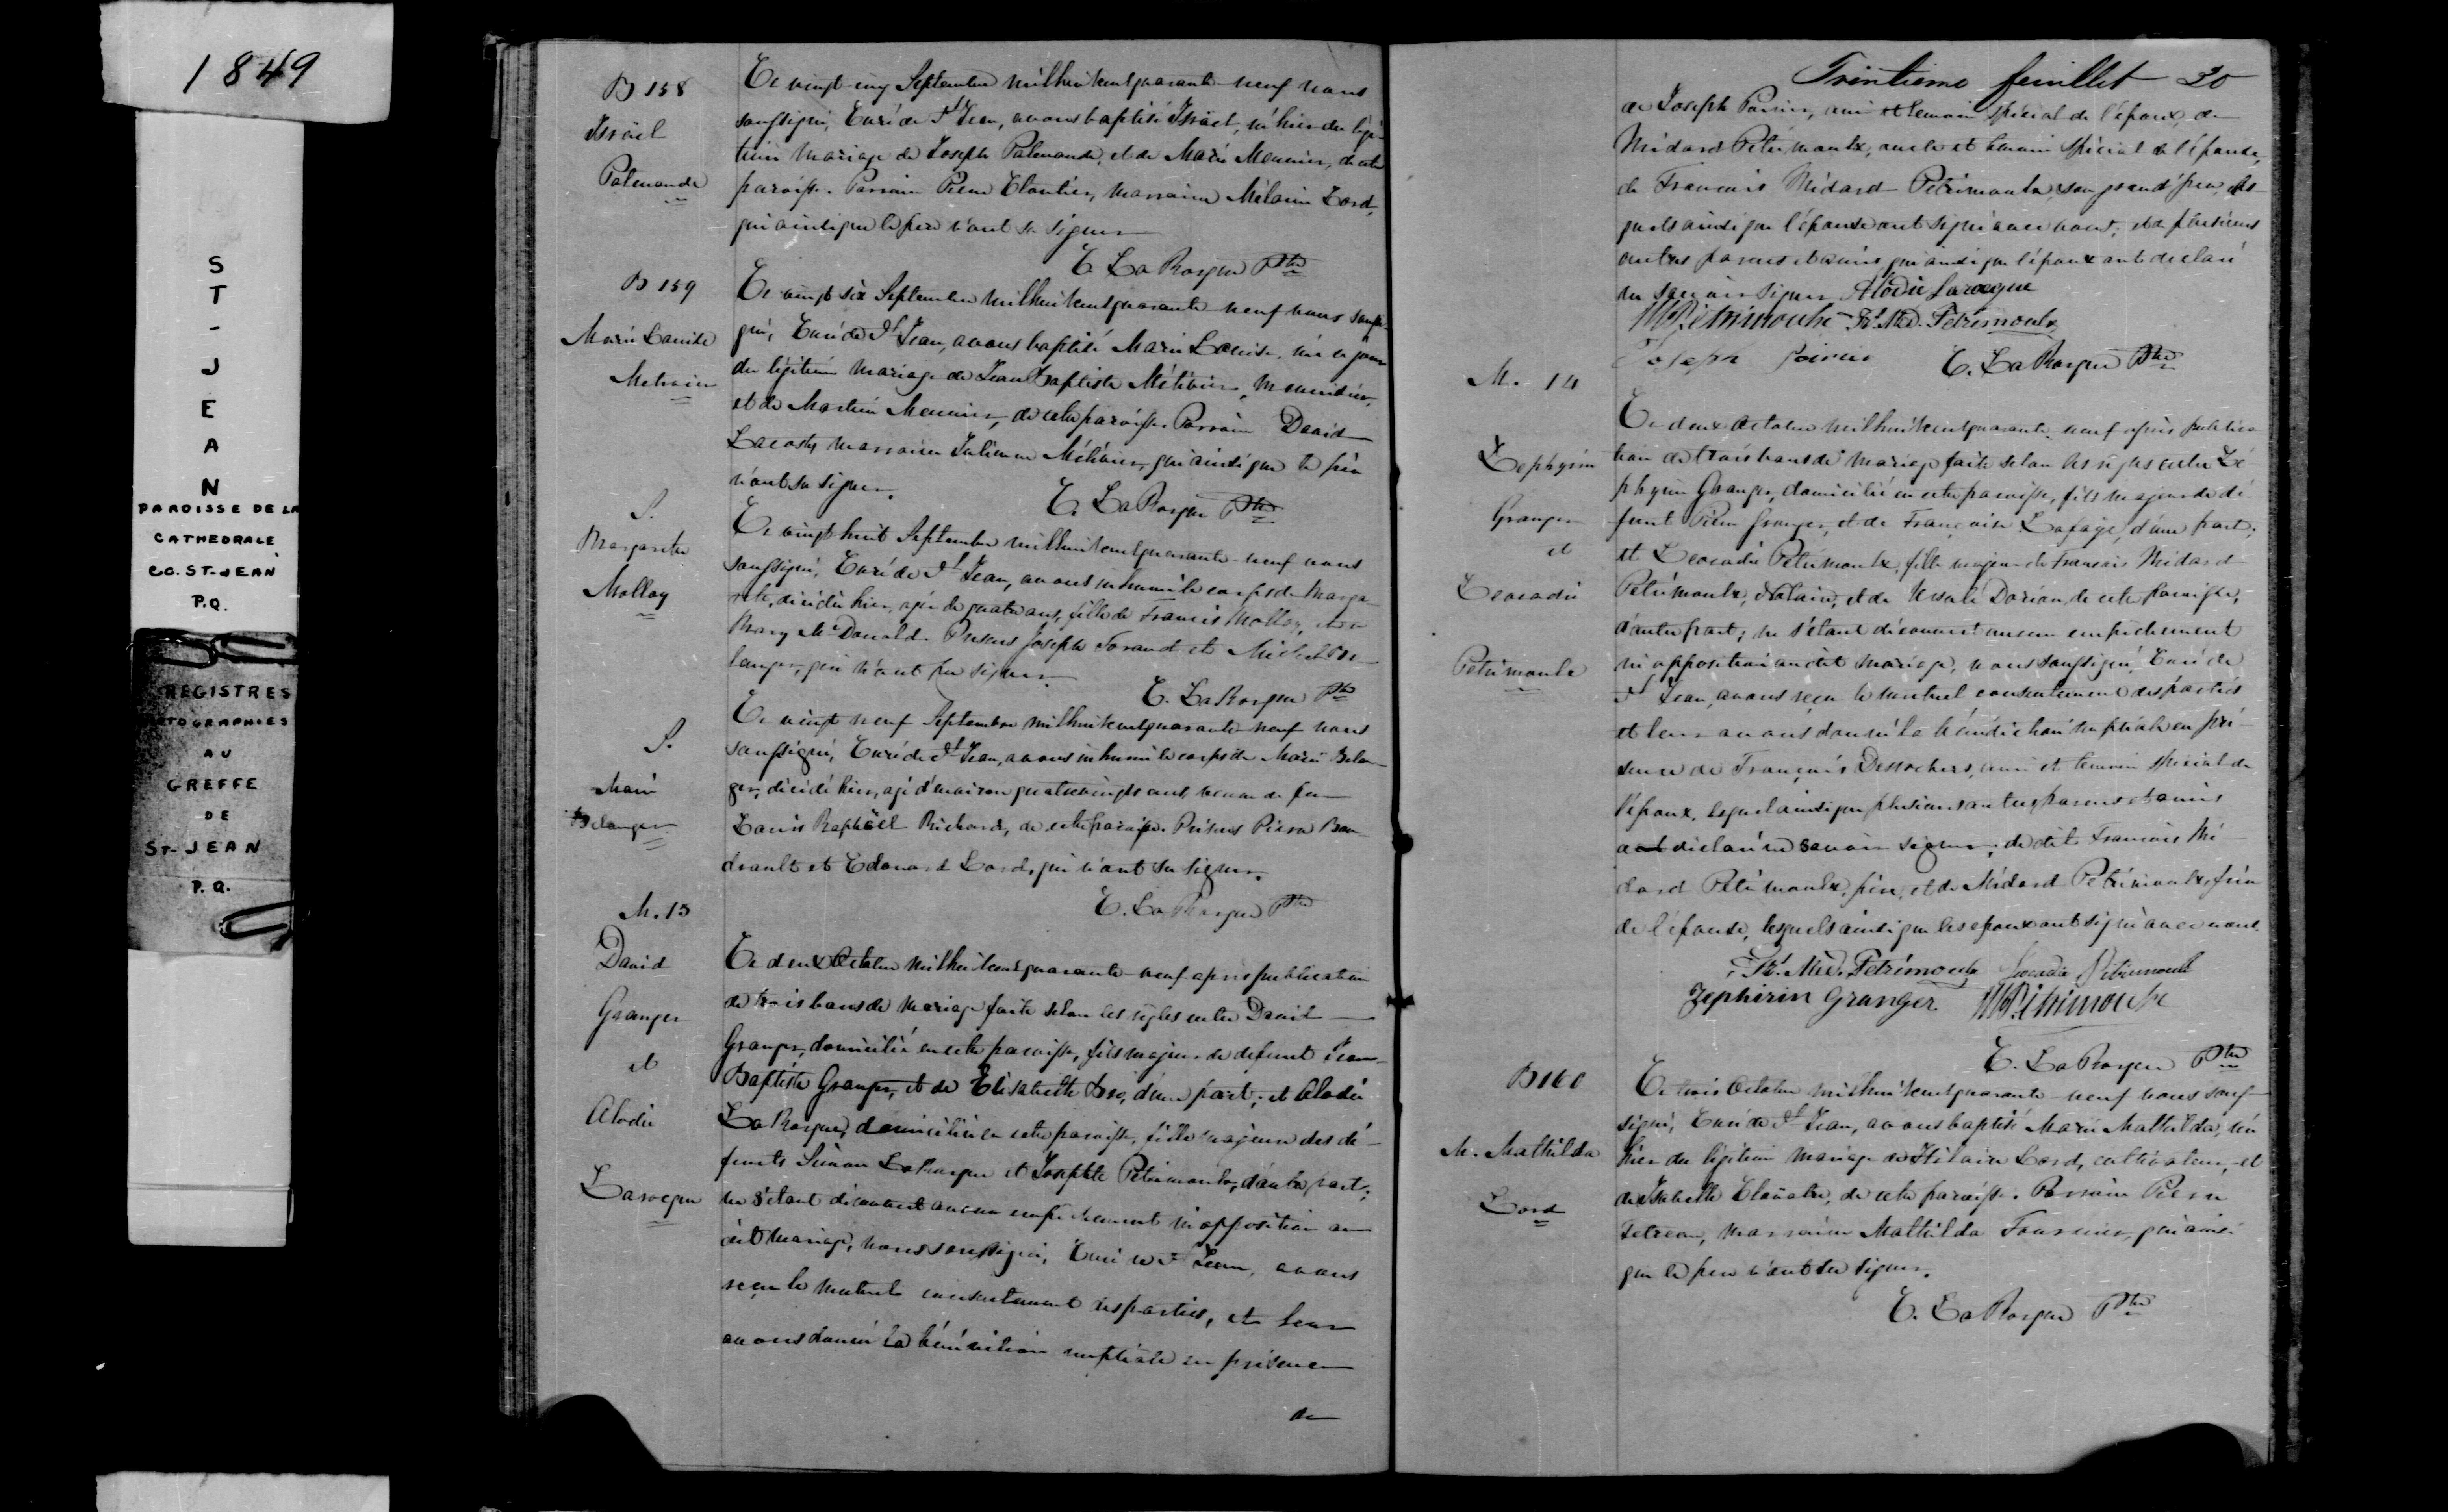 1849
ST-JEAN
PAROISSE DE LA
CATHEDRALE
CO. ST-JEAN
P.Q.
REGISTRES
PHOTOGRAPHIES
AU
GREFFE
DE
ST-JEAN
P.Q.
B 158
Israël
Patenaude
Ce vingt cinq Septembre mil huit cent quarante-neuf nous
soussigné, Curé de St Jean, avons baptisé Israël, né hier du légi-
time mariage de Joseph Patenaude, et de Marie Meunier, de cette
paroisse. Parrain Pierre Cloutier, marraine Mélanie Lord,
qui ainsi que le père n'ont su signer
C. LaRocque Ptre
B 159
Marie Louise
Métivier
Ce vingt six Septembre mil huit cent quarante-neuf nous soussi-
gné, Curé de St Jean, avons baptisé Marie Louise, née ce jour
du légitime mariage de Jean Baptiste Métivier, menuisier,
et de Martine Meunier, de cette paroisse. Parrain David
Lacoste, marraine Julienne Métivier, qui ainsi que le père
n'ont su signer.
C. LaRocque Ptre
S.
Margarette
Molloy
Ce vingt huit Septembre mil huit cent quarante-neuf nous
soussigné, Curé de St Jean, avons inhumé le corps de Marga-
rette, décédée hier, agée de quatre ans, fille de Francis Molloy, et de
Mary McDonald. Présens Joseph Forand et Michel Be-
langer, qui n'ont pu signer.
C. LaRocque Ptre
S.
Marie
Belanger
Ce vingt neuf Septembre mil huit cent quarante-neuf nous
soussigné, Curé de St Jean, avons inhumé le corps de Marie Belan-
ger, décédé hier, agé d'environ quatrevingts ans, veuve de feu
Louis Raphaël Richard, de cette paroisse. Présens Pierre Bou-
dreault et Edouard Lord, qui n'ont su signer.
C. LaRocque Ptre
M. 13
David
Granger
et
Alodie
Larocque
Ce deux Octobre mil huit cent quarante-neuf après publication
de trois bans de mariage faite selon les règles entre David
Granger, domicilié en cette paroisse, fils majeur de defunt Jean-
Baptiste Granger, et de Elisabeth Bro, d'une part; et Alodie
LaRocque, domiciliée en cette paroisse, fille majeure des dé-
funts Simon LaRocque et Josephte Petrimoulx, d'autre part;
ne s'étant découvert aucun empêchement ni opposition au
dit mariage, nous soussigné, Curé de St Jean, avons
reçu le mutuel consentement des parties, et leur
avons donné la bénédiction nuptiale en présence
de
Trentieme feuillet 30
de Joseph Poirier, ami et temoin spécial de l'époux, de
Médard Petrimoulx, oncle et temoin spécial de l'épouse,
de François Médard Petrimoulx, son grand père, les-
quels ainsi que l'épouse ont signé avec nous, et de plusieurs
autres parens et amis qui ainsi que l'époux ont declaré
ne savoir signer. Alodie Larocque
M Pétrimoulx Fs. Med. Petrimoulx
Joseph Poirier C. LaRocque Ptre
M. 14
Zephirin
Granger
et
Leocadie
Petrimoulx
Ce deux Octobre mil huit cent quarante-neuf après publica-
tion de trois bans de mariage faite selon les règles entre Zé-
phyrin Granger, domicilié en cette paroisse, fils majeur de dé-
funt Pierre Granger, et de Françoise Lafaye, d'une part;
et Leocadie Petrimoulx, fille majeure de François Médard
Petrimoulx, Notaire, et de Ursule Dorion, de cette paroisse,
d'autre part; ne s'étant découvert aucun empêchement
ni opposition au dit mariage, nous soussigné, Curé de
St Jean, avons reçu le mutuel consentement des parties
et leur avons donné la bénédiction nuptiale en pré-
sence de François Desrochers, ami et temoin spécial de
l'époux, lequel ainsi que plusieurs autres parens et amis
ont declaré ne savoir signer; de dit François Mé-
dard Petrimoulx, père, et de Médard Petrimoulx, frère
de l'épouse, lesquels ainsi que les epoux ont signé avec nous.
Fs. Med. Petrimoulx Leocadie Pétrimoulx
Zephirin Granger M Pétrimoulx
C. LaRocque Ptre
B 160
M. Mathilda
Lord
Ce trois Octobre mil huit cent quarante-neuf nous sous-
signé, Curé de St Jean, avons baptisé Marie Mathilda, née
hier du légitime mariage de Hilaire Lord, cultivateur, et
de Isabelle Cloutier, de cette paroisse. Parrain Pierre
Tetreau, marraine Mathilda Fournier, qui ainsi
que le père n'ont su signer.
C. LaRocque Ptre